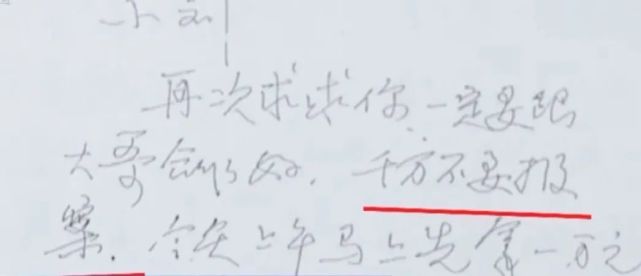 小刘
再次求求你一定要跟
大哥合作好，千万不要报
案。今天上午马上先拿一万元